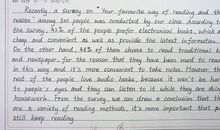 Recently a survey on "Your favourite way of reading and the
reason" among ten people was conducted by our class. According to
the survey, 42% of the people prefer electronical books, which are
cheap and convenient as well as provide the latest information.
On the other hand, 48% of them chose to read traditional books
and newspaper, for the reason that they have been used to reading
in this way and it's more convenient to take notes. However, the
rest of the people love audio books, because it won't be harmful
to people's eyes and they can listen to it while they are doing
housework. From the survey, we can draw a conclusion that there
are a variety of reading methods, it's more important that people
still keep reading.